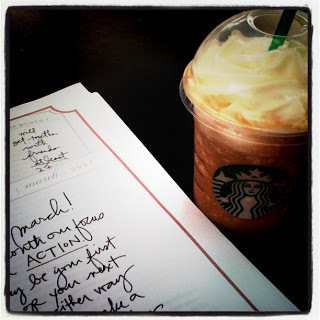 will
get together
with
friends
at least
2x
march
march!
month our focus
ACTION!
may be your first
or your next
either way
make a
STARBUCKS